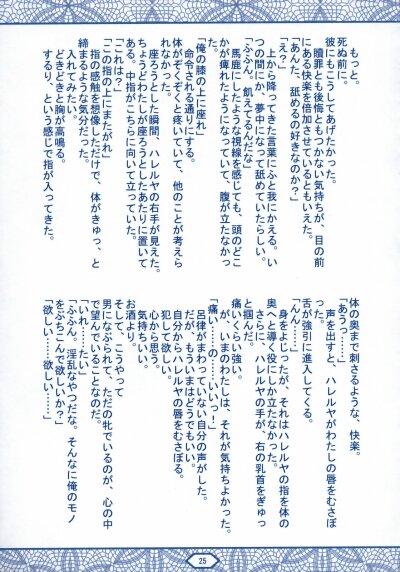 もっと。
死ぬ前に。
彼にもこうしてあげたかった。
贖罪とも後悔ともつかない気持ちが、目の前
にある快楽を倍加させているともいえた。
「あんた、舐めるの好きなのか？」
「え？」
上から降ってきた言葉にふと我にかえる。い
つの間にか、夢中になって舐めていたらしい。
「ふふん。飢えてるんだな」
馬鹿にしたような視線を感じても、頭のどこ
かが痺れたようになっていて、腹が立たなか
った。
「俺の膝の上に座れ」
命令される通りにする。
体がぞくぞくと疼いていて、他のことが考えら
れなかった。
座ろうとした瞬間、ハレルヤの右手が見えた。
ちょうどわたしが座ろうとしたあたりに置いて
ある。中指がこちらに向いて立っていた。
「これは？」
「この指の上にまたがれ」
指の感触を想像しただけで、体がきゅっ、と
締まるような気分だった。
入れてみたい。
どきどきと胸が高鳴る。
するり、という感じで指が入ってきた。
体の奥まで刺さるような、快楽。
「あうっ……」
声を出すと、ハレルヤがわたしの唇をむさぼ
った。
舌が強引に進入してくる。
「んん……」
身をよじったが、それはハレルヤの指を体の
奥へと導く役にしか立たなかった。
さらに、ハレルヤの左手が、右の乳首をぎゅっ
と掴んだ。
痛いくらい強い。
が、いまのわたしは、それが気持ちよかった。
「痛い……の……いいっ！」
呂律がまわっていない自分の声がした。
だが、もういまはどうでもいい。
自分からハレルヤの唇をむさぼる。
犯して欲しい。
心から思う。
気持ちいい。
お酒より。
そして、こうやって
男になぶられて、ただの牝でいるのが、心の中
で望んでいることなのだ。
「いれ……たい」
「ふふん。淫乱なやつだな。そんなに俺のモノ
をぶちこんで欲しいか？」
「欲しい……欲しい……」
25